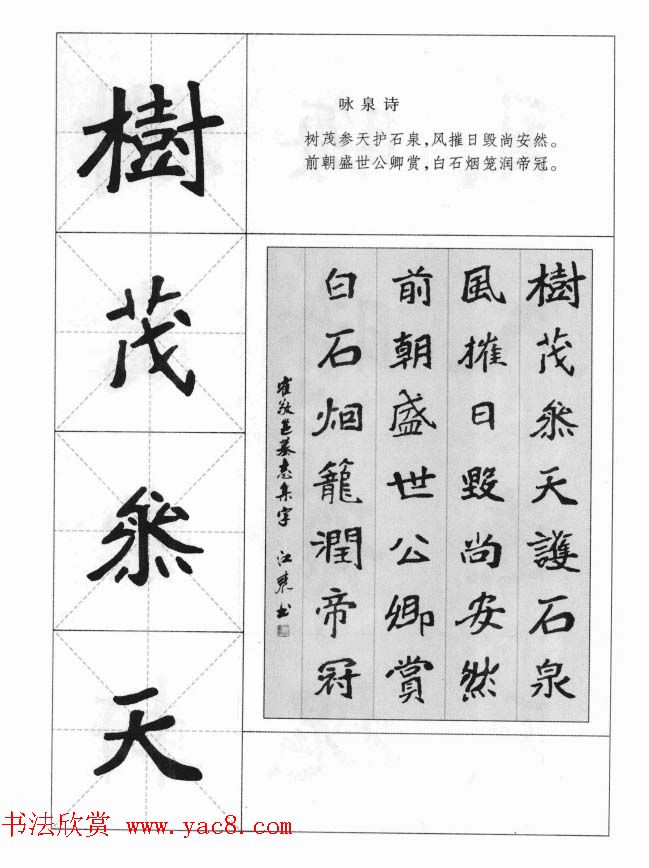 樹
茂
叅
天
咏泉诗
树茂参天护石泉，风摧日毁尚安然。
前朝盛世公卿赏，白石烟笼润帝冠。
樹茂叅天護石泉
風摧日毀尚安然
前朝盛世公卿賞
白石烟籠潤帝冠
崔敬邕墓志集字 江東書
书法欣赏 www.yac8.com